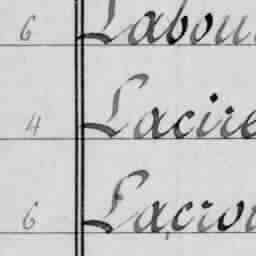 6 Labou
4 Lacire
6 Lacrou